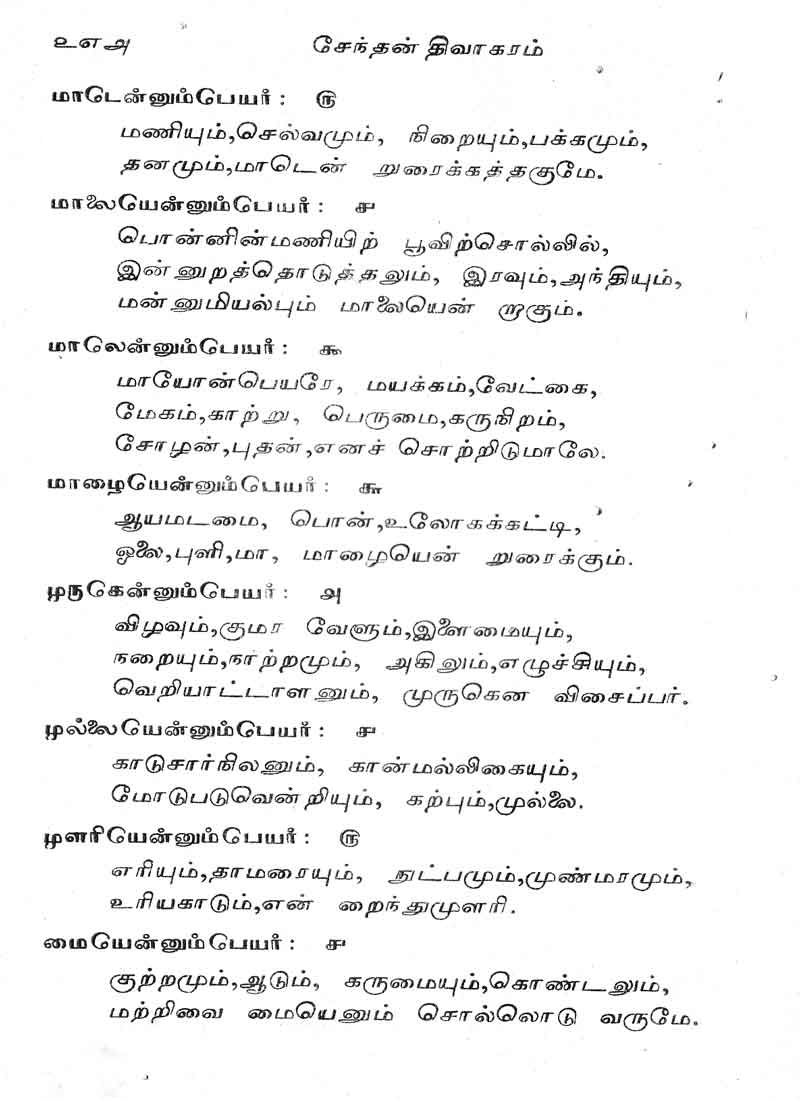 உளஅ சேந்தன் திவாகரம்
மாடென்னும்பெயர்: ௫
மணியும்,செல்வமும், நிறையும்,பக்கமும்,
தனமும்,மாடென் றுரைக்கத்தகுமே.
மாலையென்னும்பெயர்: ௪
பொன்னின்மணியிற் பூவிற்சொல்லில்,
இன்னுறத்தொடுத்தலும், இரவும்,அந்தியும்,
மன்னுமியல்பும் மாலையென் றாகும்.
மாலென்னும்பெயர்: ௯
மாயோன்பெயரே, மயக்கம்,வேட்கை,
மேகம்,காற்று, பெருமை,கருநிறம்,
சோழன்,புதன்,எனச் சொற்றிடுமாலே.
மாழையென்னும்பெயர்: ௬
ஆயமடமை, பொன்,உலோகக்கட்டி,
ஓலை,புளி,மா, மாழையென் றுரைக்கும்.
முருகென்னும்பெயர்: ௮
விழவும்,குமர வேளும்,இளைமையும்,
நறையும்,நாற்றமும், அகிலும்,எழுச்சியும்,
வெறியாட்டாளனும், முருகென விசைப்பர்.
முல்லையென்னும்பெயர்: ௪
காடுசார்நிலனும், கான்மல்லிகையும்,
மோடுபடுவென்றியும், கற்பும்,முல்லை.
முளரியென்னும்பெயர்: ௫
எரியும்,தாமரையும், நுட்பமும்,முண்மரமும்,
உரியகாடும்,என் றைந்துமுளரி.
மையென்னும்பெயர்: ௪
குற்றமும்,ஆடும், கருமையும்,கொண்டலும்,
மற்றிவை மையெனும் சொல்லொடு வருமே.